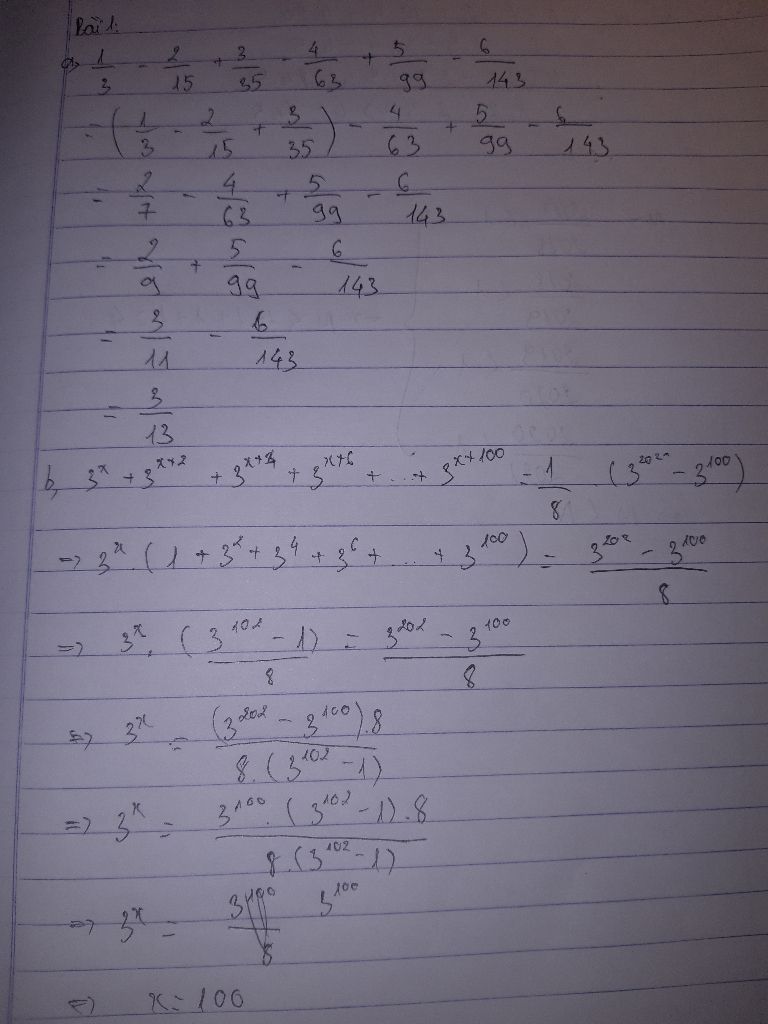 Bài 1:
a, 1/3 - 2/15 + 3/35 - 4/63 + 5/99 - 6/143
= (1/3 - 2/15 + 3/35) - 4/63 + 5/99 - 6/143
= 2/7 - 4/63 + 5/99 - 6/143
= 2/9 + 5/99 - 6/143
= 3/11 - 6/143
= 3/13
b, 3^x + 3^(x+2) + 3^(x+4) + 3^(x+6) + ... + 3^(x+100) = 1/8 . (3^202 - 3^100)
=> 3^x . (1 + 3^2 + 3^4 + 3^6 + ... + 3^100) = (3^202 - 3^100)/8
=> 3^x . (3^102 - 1)/8 = (3^202 - 3^100)/8
=> 3^x = (3^202 - 3^100).8 / 8.(3^102 - 1)
=> 3^x = 3^100 . (3^102 - 1) . 8 / 8.(3^102 - 1)
=> 3^x = 3^100
=> x = 100